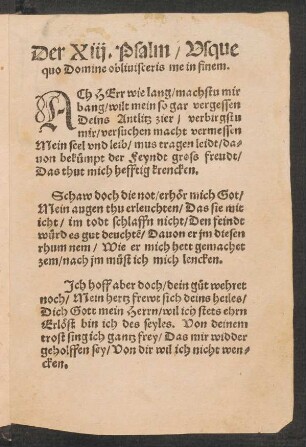 Der Xiij. Psalm / Vsque
quo Domine obliuisceris me in finem.
ACh HErr wie lang / machstu mir
bang / wilt mein so gar vergessen
Deins Antlitz zier / verbirgstu
mir / versuchen macht vermessen
Mein seel vnd leib / mus tragen leidt / da-
uon bekümpt der Feyndt gross freudt /
Das thut mich hefftig krencken.
Schaw doch die not / erhör mich Got /
Mein augen thu erleuchten / Das sie mit
icht / im todt schlaffn nicht / Den feindt
würd es gut deuchte / Dauon er jm diesen
rhum nem / Wie er mich hett gemachet
zem / nach jm müst ich mich lencken.
Ich hoff aber doch / dein güt wehret
noch / Mein hertz frewt sich deins heiles /
Dich Gott mein Herrn / wil ich stets ehrn
Erlöst bin ich des seyles. Von deinem
trost sing ich gantz frey / Das mir widder
geholffen sey / Von dir wil ich nicht wen-
cken.